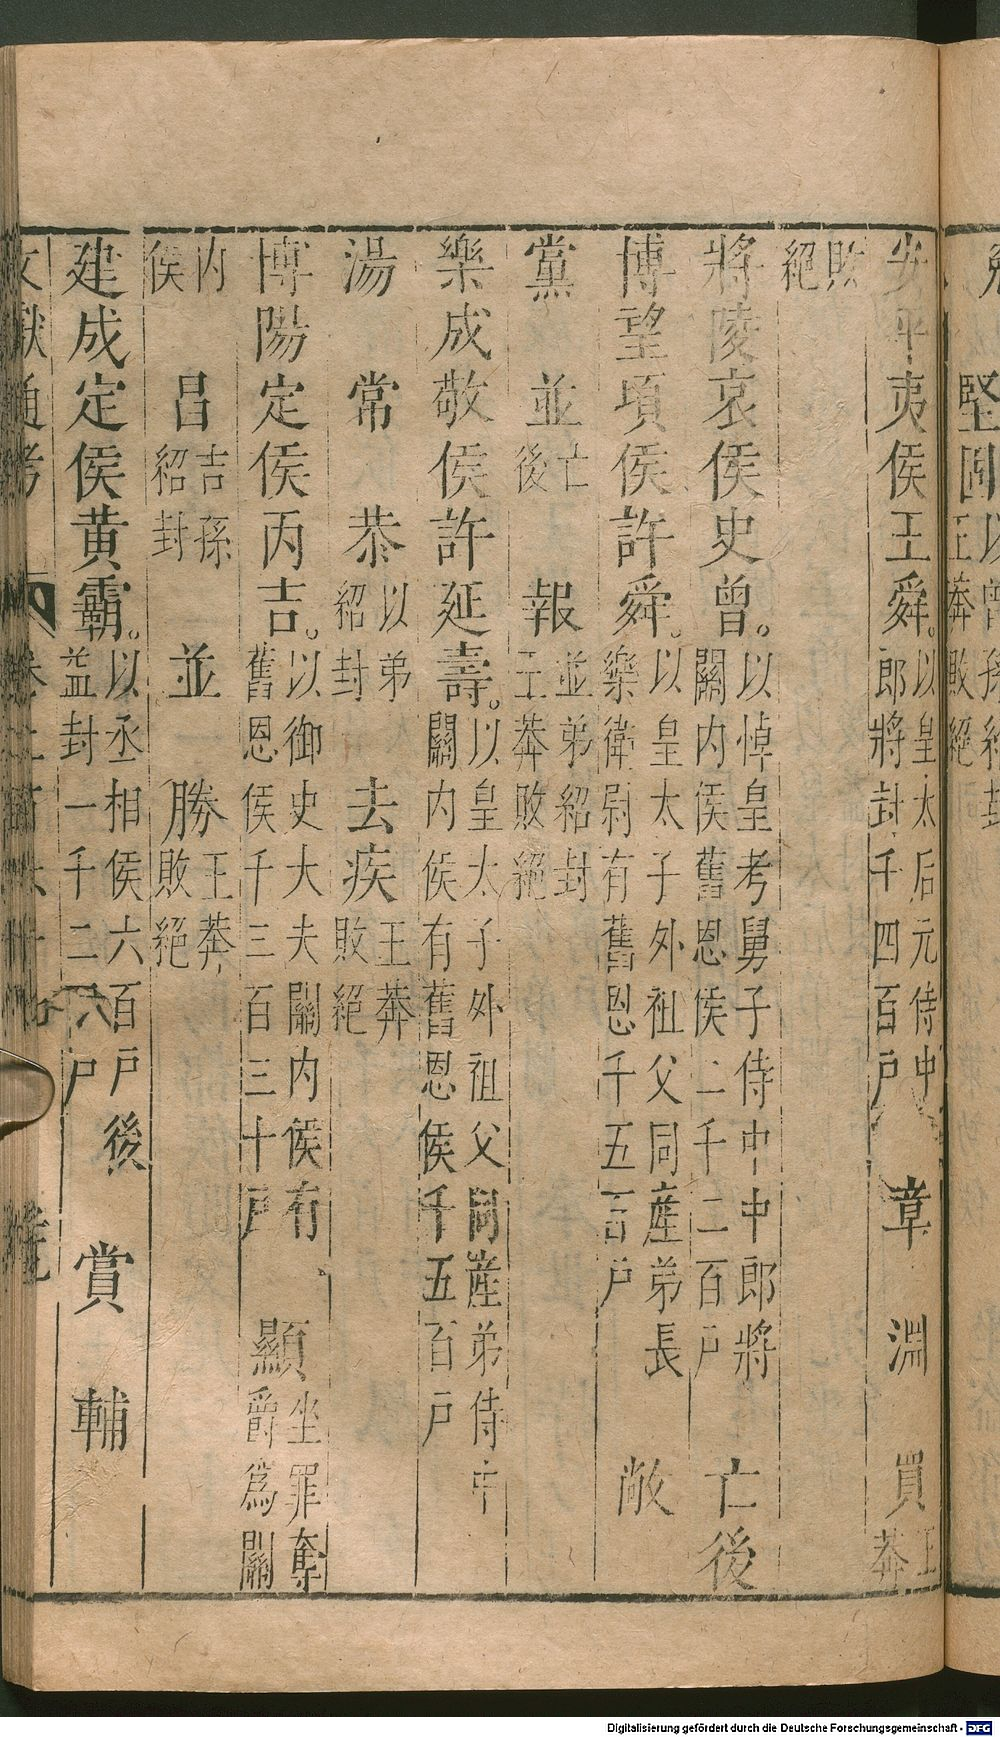 堅固以曾孫紹封王莽敗絕
安平夷侯王舜。以皇太后元侍中郎將封千四百戶　章　淵　買王莽
敗絕
將陵哀侯史曾。以悼皇考舅子侍中中郎將關內侯舊恩侯二千二百戶　亡後
博望頃侯許舜。以皇太子外祖父同產弟長樂衛尉有舊恩千五百戶　敞
黨　並亡後　報並弟紹封王莽敗絕
樂成敬侯許延壽。以皇太子外祖父同產弟侍中關內侯有舊恩侯千五百戶
湯　常　恭以弟紹封　去疾王莽敗絕
博陽定侯丙吉。以御史大夫關內侯有舊恩侯千三百三十戶　顯坐罪奪爵爲關
內侯　昌吉孫紹封　並　勝王莽敗絕
建成定侯黄霸。以丞相侯六百戶後益封一千二八戶　賞　輔
文獻通考
Digitalisierung gefördert durch die Deutsche Forschungsgemeinschaft - DFG